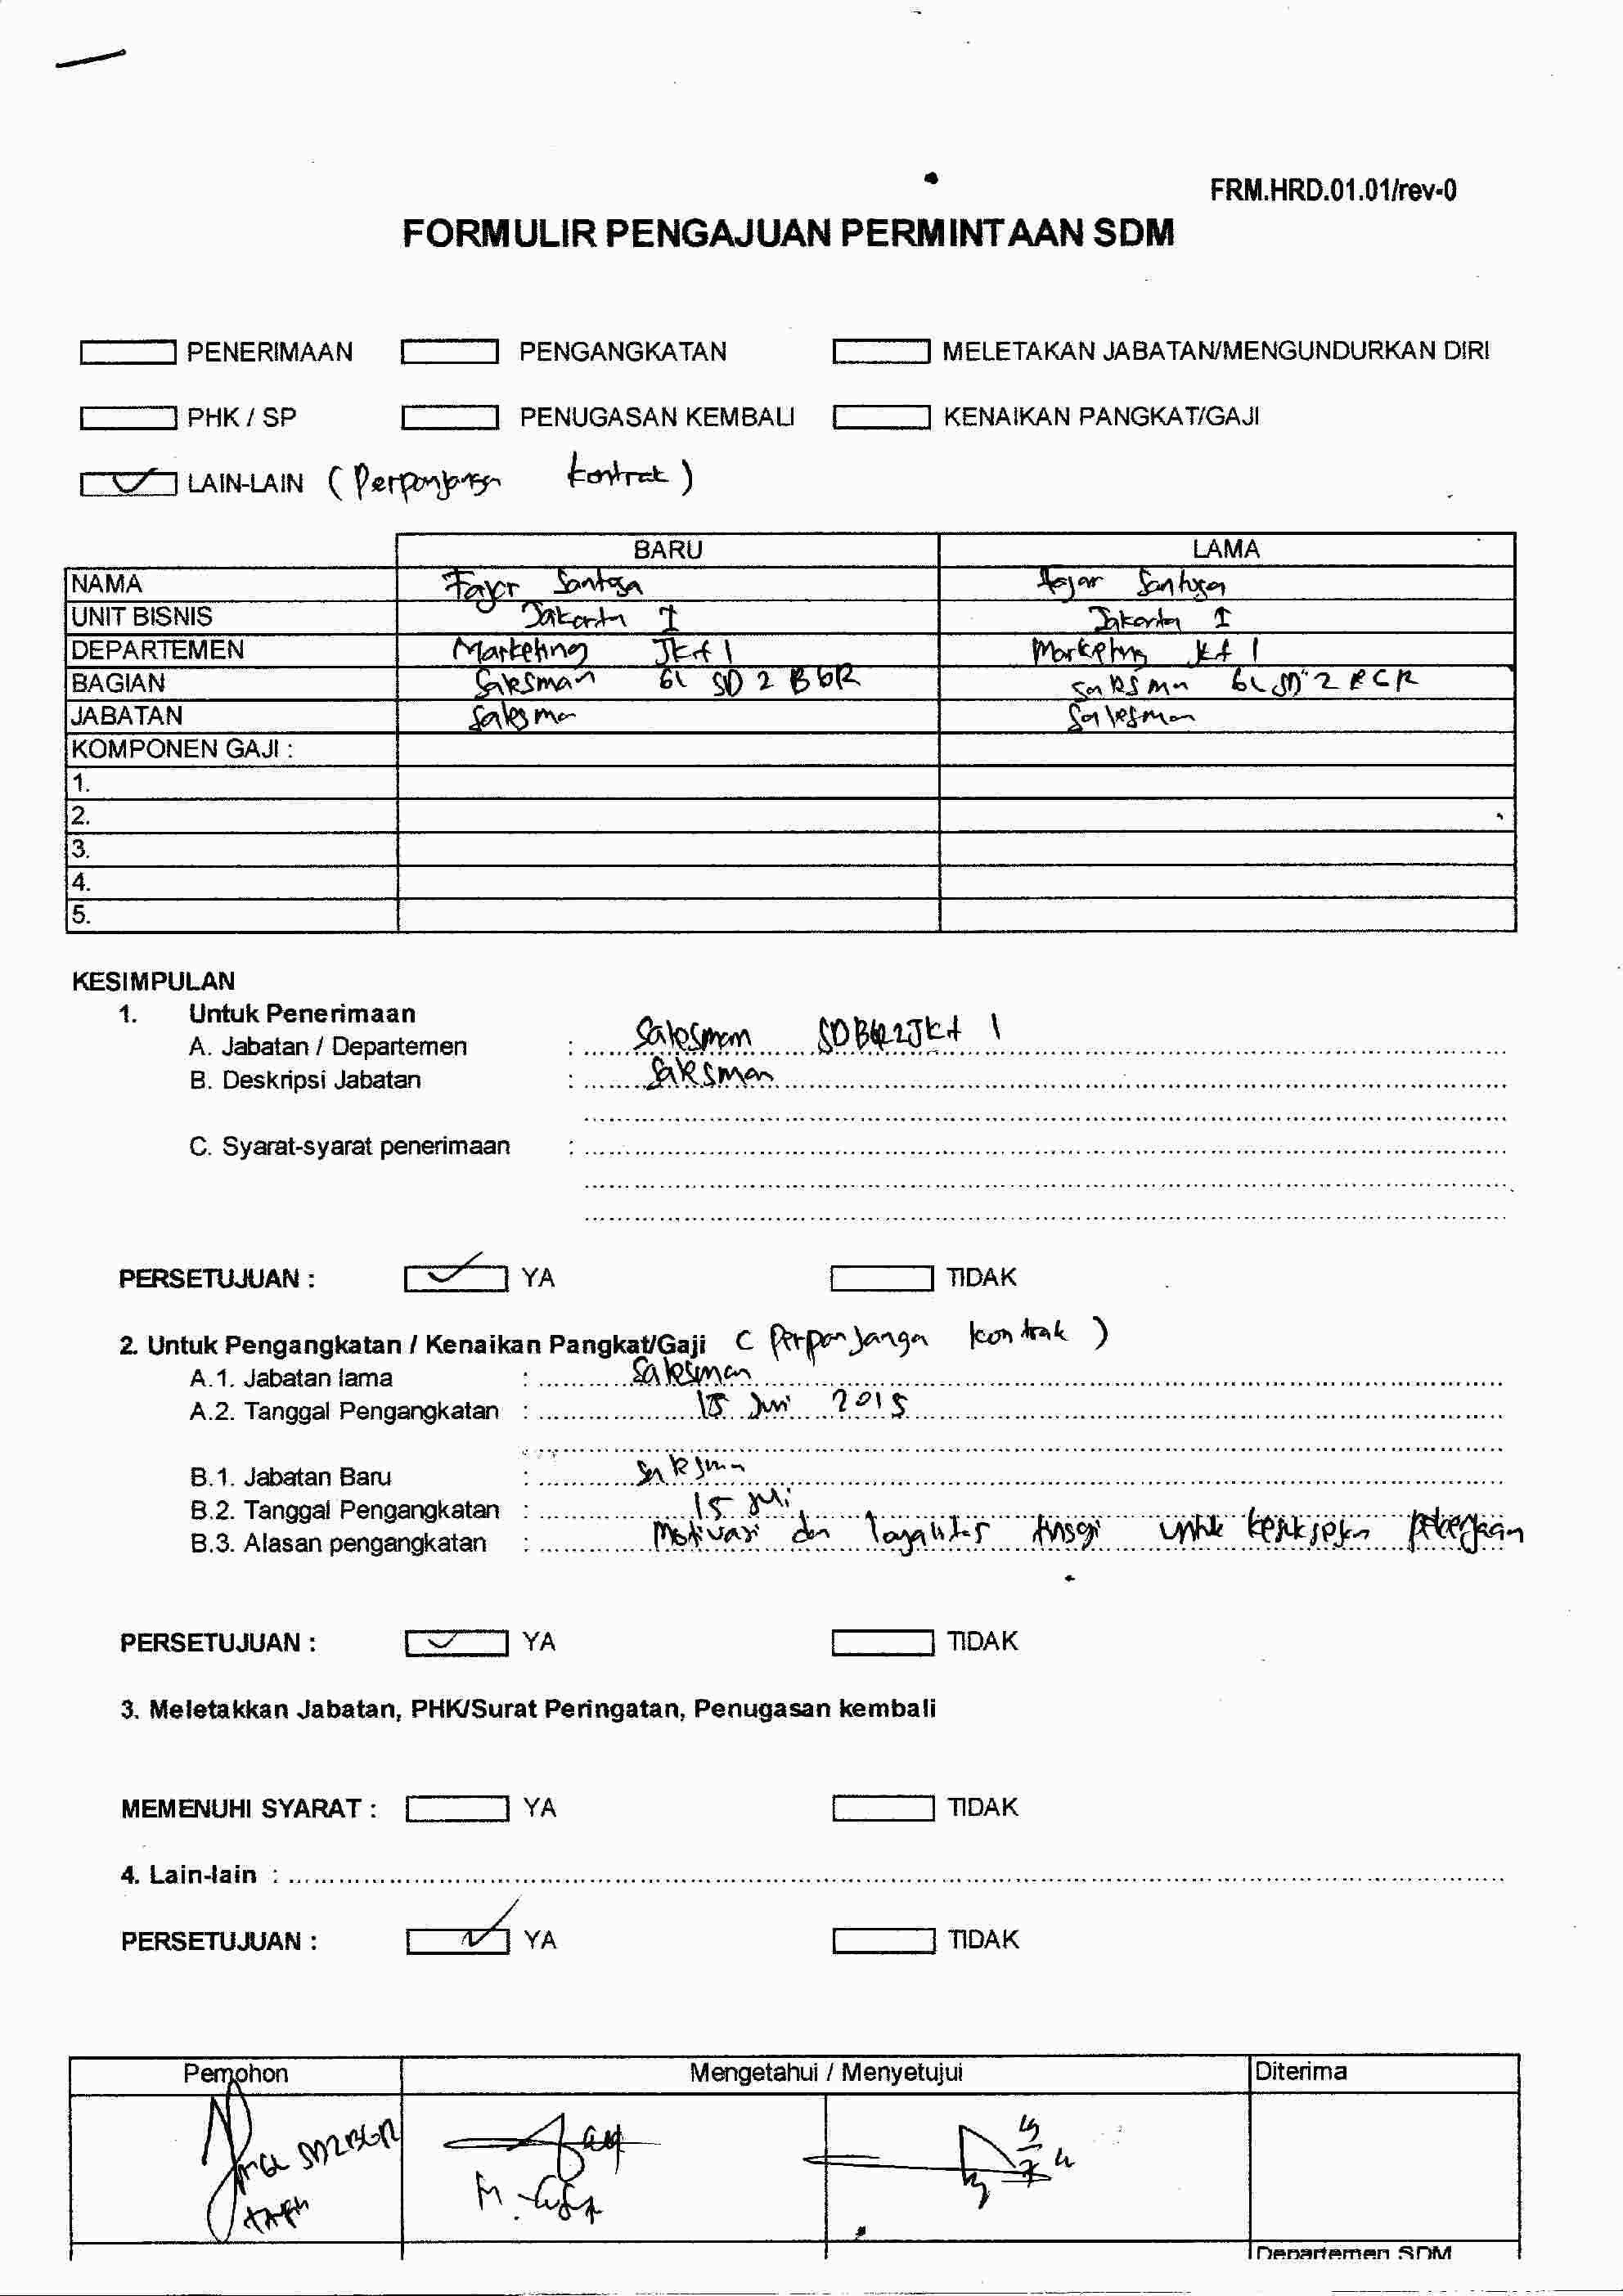 FRM.HRD.01.01/rev-0
FORMULIR PENGAJUAN PERMINTAAN SDM
PENERIMAAN PENGANGKATAN MELETAKAN JABATAN/MENGUNDURKAN DIRI
PHK / SP PENUGASAN KEMBALI KENAIKAN PANGKAT/GAJI
LAIN-LAIN (Perpanjangan kontrak)
BARU LAMA
NAMA Fajar Santosa Fajar Santosa
UNIT BISNIS Jakarta I Jakarta I
DEPARTEMEN Marketing Jkt 1 Marketing Jkt 1
BAGIAN Salesman SD 2 Salesman
JABATAN Salesman Salesman
KOMPONEN GAJI :
1.
2.
3.
4.
5.
KESIMPULAN
1. Untuk Penerimaan
A. Jabatan / Departemen : Salesman
B. Deskripsi Jabatan : Salesman
C. Syarat-syarat penerimaan :
PERSETUJUAN : YA TIDAK
2. Untuk Pengangkatan / Kenaikan Pangkat/Gaji (Perpanjangan kontrak)
A.1. Jabatan lama : Salesman
A.2. Tanggal Pengangkatan : 15 Juni 2015
B.1. Jabatan Baru : Salesman
B.2. Tanggal Pengangkatan : 15 Juli
B.3. Alasan pengangkatan : Motivasi dan loyalitas tinggi untuk pekerjaan
PERSETUJUAN : YA TIDAK
3. Meletakkan Jabatan, PHK/Surat Peringatan, Penugasan kembali
MEMENUHI SYARAT : YA TIDAK
4. Lain-lain :
PERSETUJUAN : YA TIDAK
Pemohon Mengetahui / Menyetujui Diterima
Departemen SDM